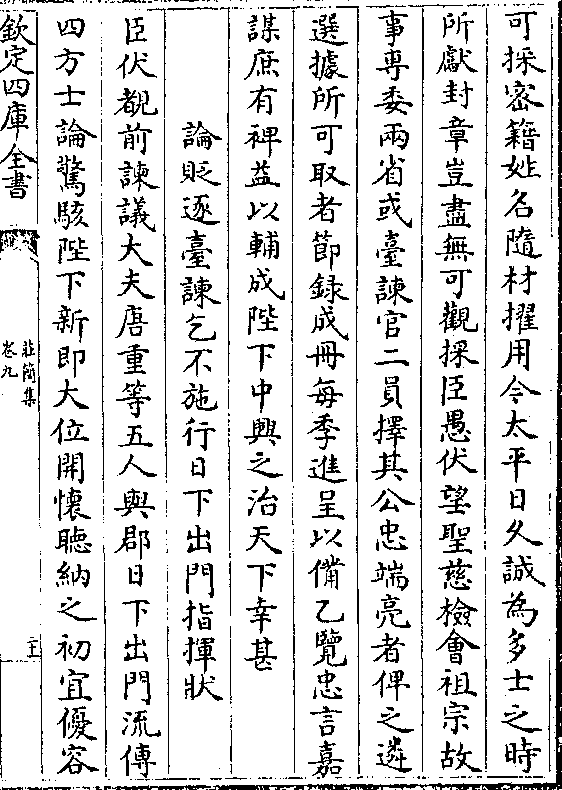 可採密籍姓名隨材擢用今太平日久誠為多士之時
所獻封章豈盡無可觀採臣愚伏望聖慈檢會祖宗故
事專委兩省或臺諫官二員擇其公忠端亮者俾之遴
選據所可取者節録成冊每季進呈以備乙覽忠言嘉
謀庶有裨益以輔成陛下中興之治天下幸甚
論貶逐臺諫乞不施行日下出門指揮狀
臣伏覩前諫議大夫唐重等五人與郡日下出門流傳
四方士論驚駭陛下新即大位開懷聽納之初宜優容
欽定四庫全書
莊簡集
卷九